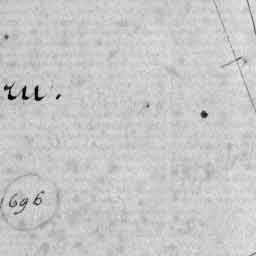 ru.
1696